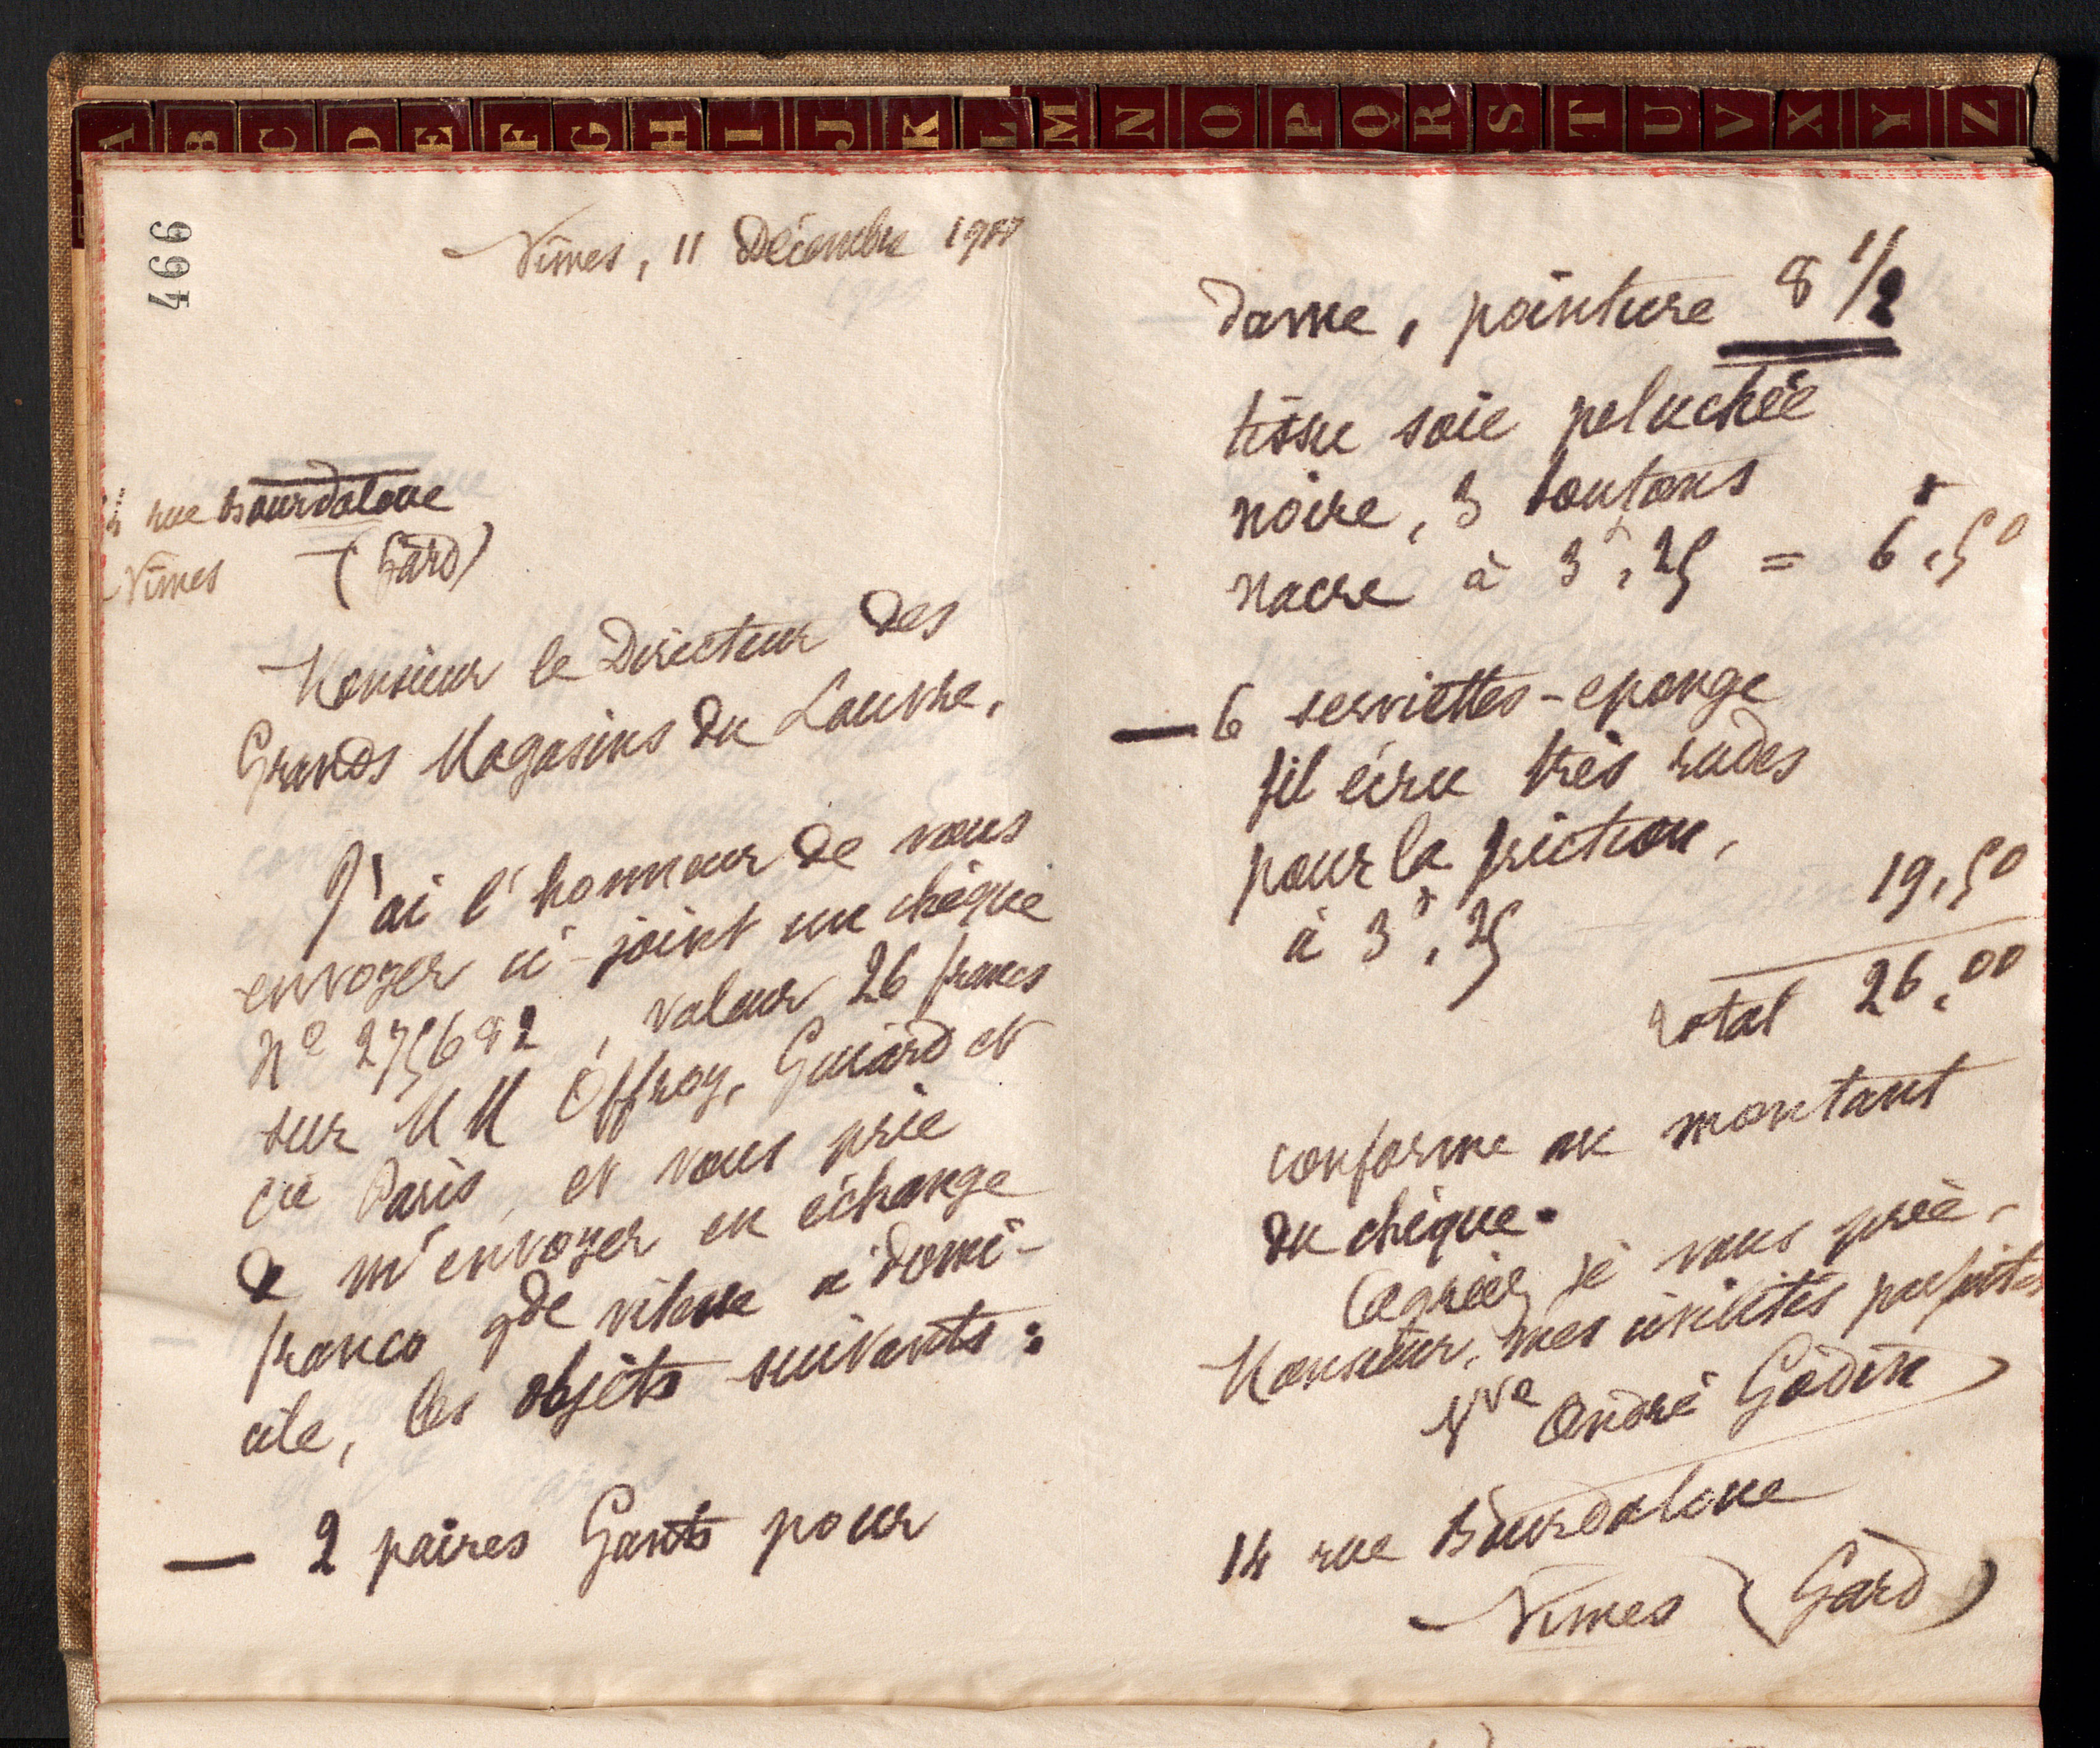 A B C D E F G H I J K L M N O P Q R S T U V X Y Z
466
Nîmes, 11 Décembre
rue Bourdaloue
Nîmes (Gard)
Monsieur le Directeur des
Grands Magasins du Louvre,
J'ai l'honneur de vous
envoyer ci-joint un chèque
No 275682, valeur 26 francs
sur MM Offroy, Guiard et
Cie Paris, et vous prie
de m'envoyer en échange
franco gde vitesse à domi-
cile, les objets suivants :
— 2 paires Gants pour
dame, pointure 8 1/2
tissu soie peluchée
noire, 3 boutons
nacre à 3f,25 = 6f,50
— 6 serviettes-eponge
fil écru très rudes
pour la friction,
à 3f,25 19,50
Total 26,00
conforme au montant
du chèque.
Agréez, je vous prie,
Monsieur, mes civilités parfaites
Vve André Godin
14 rue Bourdaloue
Nîmes (Gard)